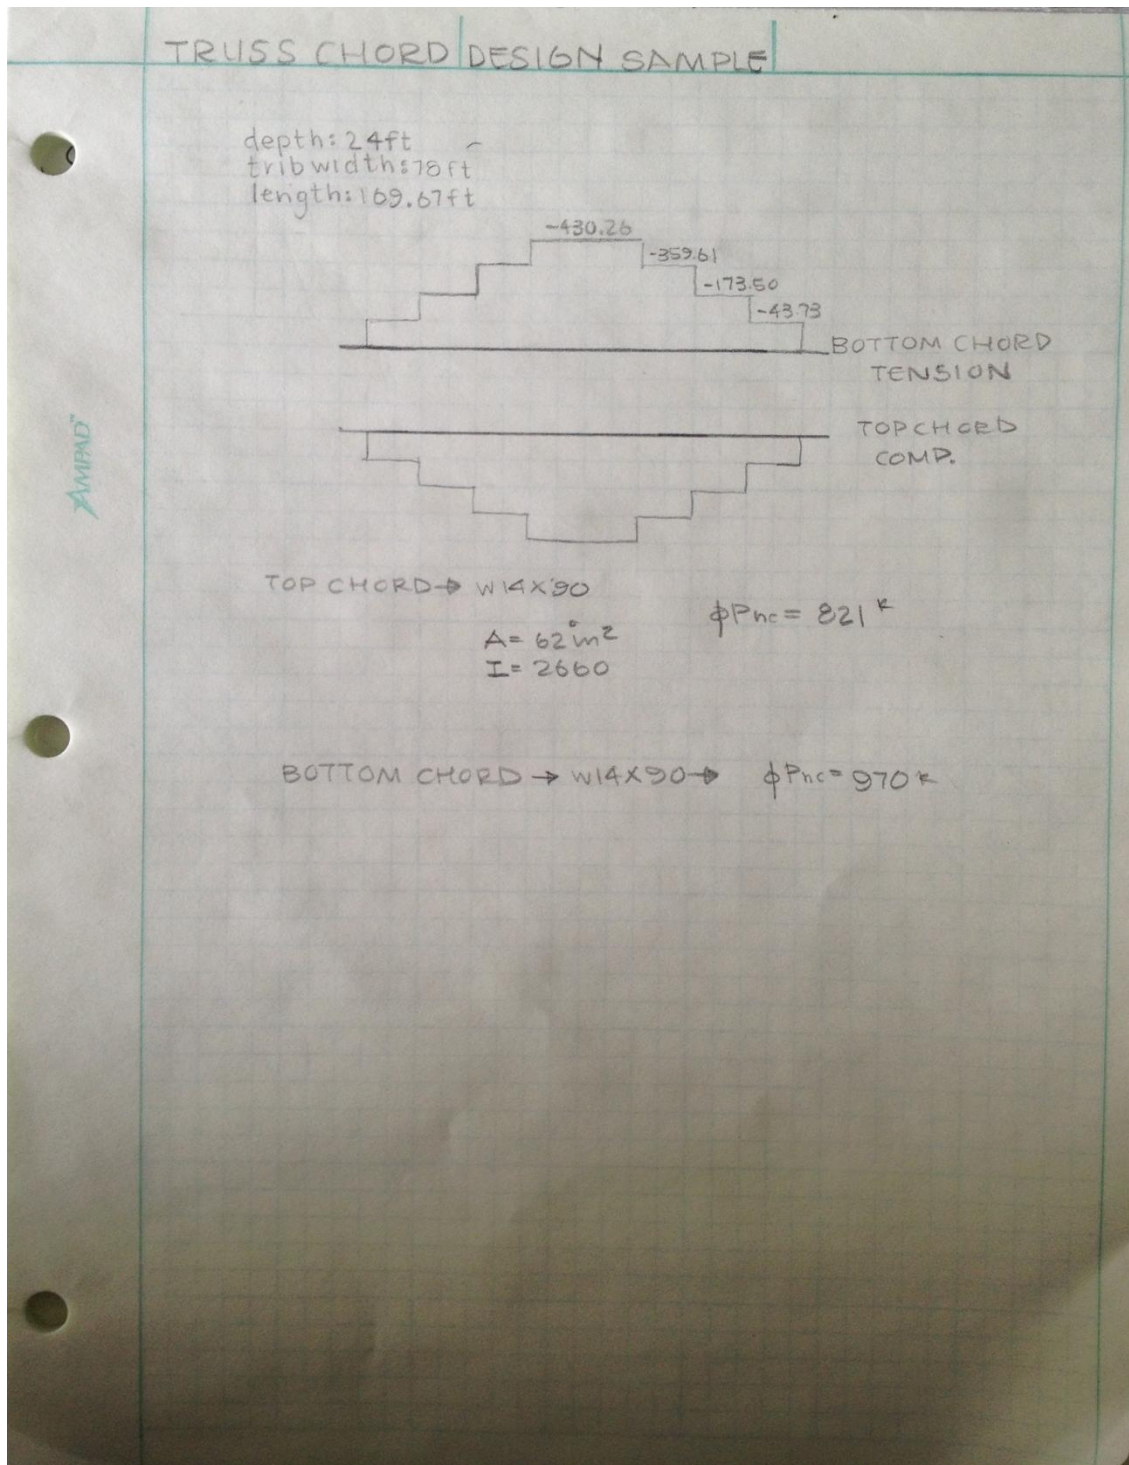 TRUSS CHORD DESIGN SAMPLE
depth: 24ft
trib width: 78ft
length: 169.67ft
-430.26
-359.61
-173.50
-43.73
BOTTOM CHORD
TENSION
TOP CHORD
COMP.
AMPAD™
TOP CHORD → W14X90
ϕPnc = 821 k
A = 62 in²
I = 2660
BOTTOM CHORD → W14X90 → ϕPnc = 970 k